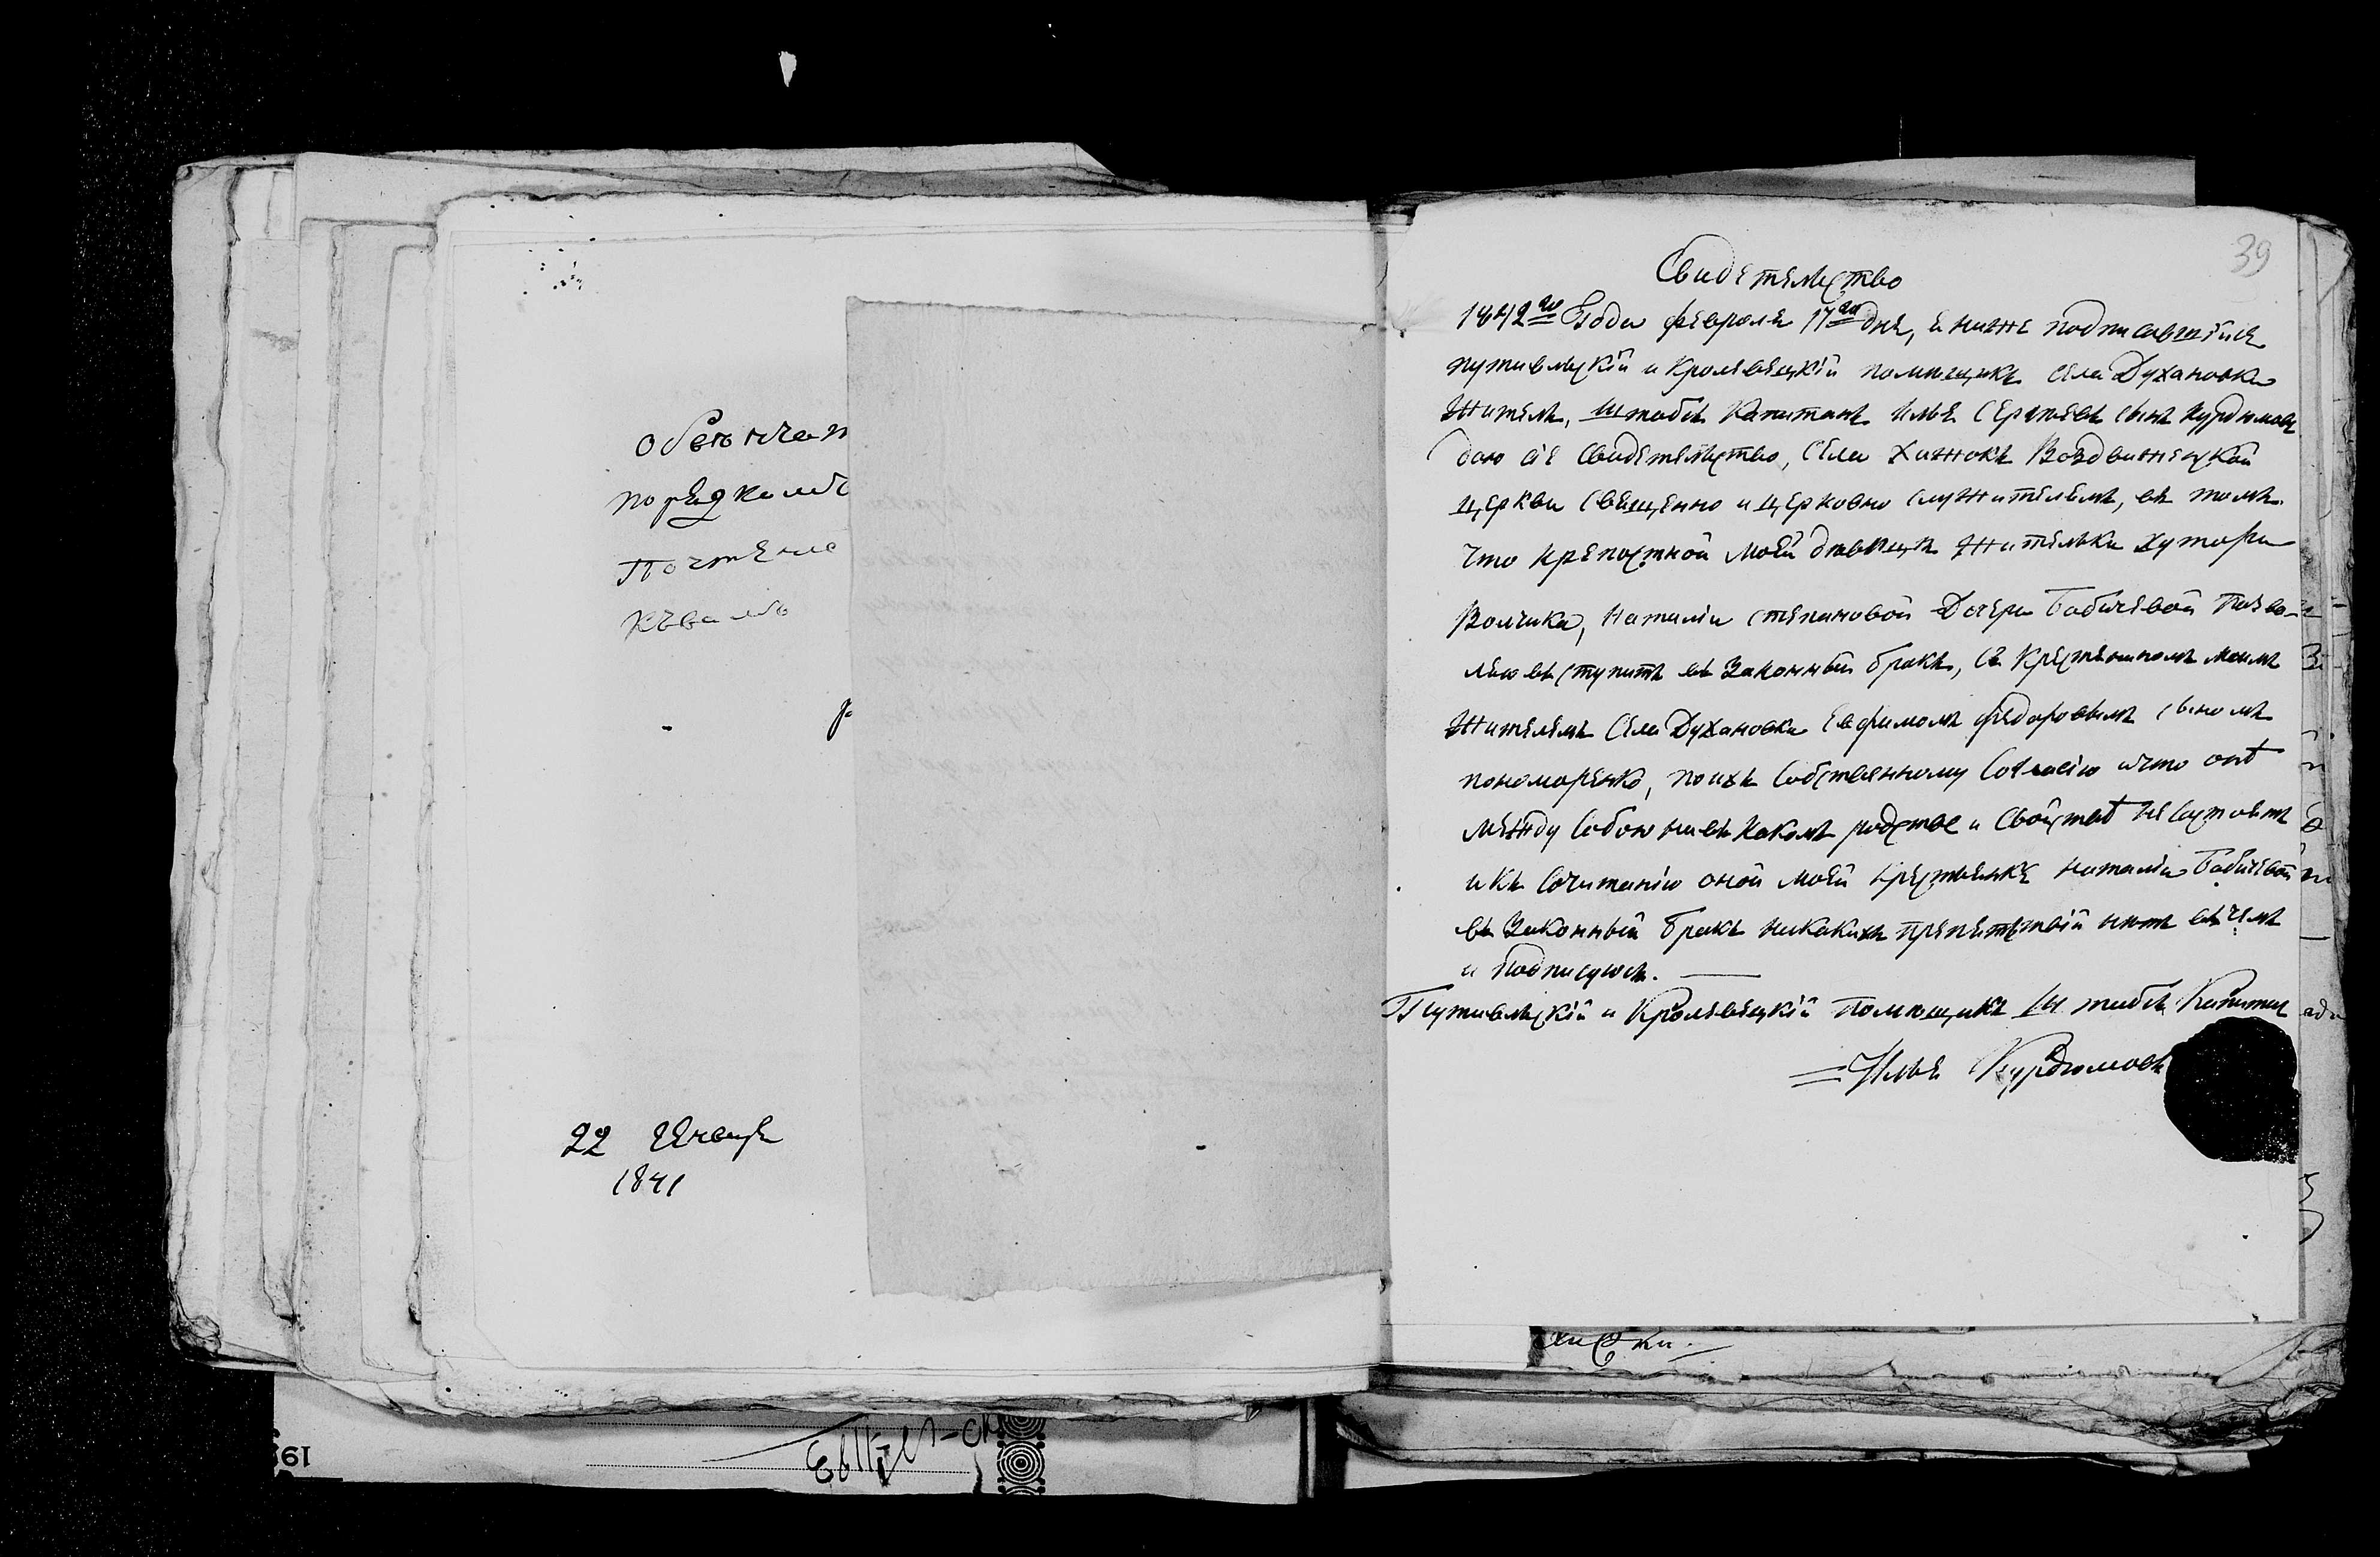 обвѣнчан
порядкомъ
Почтени
къвамъ
22 Генвар
1841
39
Свидѣтельство
1842го Года февраля 17го дня, я ниже подписавшійся
путивльскій и Кролевецкій помѣщикъ села Духановки
Житель, штабсъ Капитанъ Илья Сергѣевъ сынъ Курдюмовъ
даю сіе Свидетельство, Села Хижокъ Воздвиженской
церкви Священно и церковно служителямъ, въ томъ
что крепостной моей дѣвицѣ Жительки хутора
Волчика, Наталіи степановой Дочери Бабичевой Позво-
ляю въступить въ Законный бракъ, съ Крестьяниномъ моимъ
Жителемъ Села Духановки Евфимомъ федоровымъ сыномъ
пономаренко, поихъ Собственному Согласію ичто онѣ
между Собою нивъ какомъ родстве и Свойствѣ не состоятъ
и къ Сочитанію оной моей крестьянкѣ наталіи Бабичевой
въ Законный бракъ никакихъ препятствій нѣтъ въ чемъ
и Подписуюсь.
Путивльскій и Кролевецкій Помѣщикъ Штабсъ Капитан
Илья Курдюмовъ